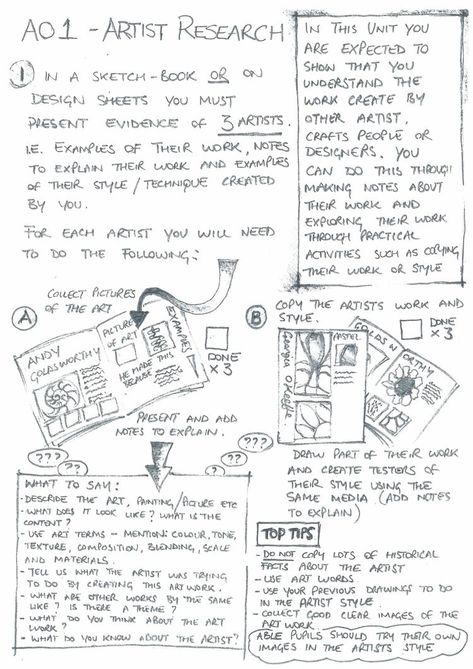 AO1 - ARTIST RESEARCH
1 IN A SKETCH-BOOK OR ON
DESIGN SHEETS YOU MUST
PRESENT EVIDENCE OF 3 ARTISTS.
I.E. EXAMPLES OF THEIR WORK, NOTES
TO EXPLAIN THEIR WORK AND EXAMPLES
OF THEIR STYLE/TECHNIQUE CREATED
BY YOU.
FOR EACH ARTIST YOU WILL NEED
TO DO THE FOLLOWING:
IN THIS UNIT YOU
ARE EXPECTED TO
SHOW THAT YOU
UNDERSTAND THE
WORK CREATE BY
OTHER ARTIST,
CRAFTS PEOPLE OR
DESIGNERS. YOU
CAN DO THIS THROUGH
MAKING NOTES ABOUT
THEIR WORK AND
EXPLORING THEIR WORK
THROUGH PRACTICAL
ACTIVITIES SUCH AS COPYING
THEIR WORK OR STYLE
COLLECT PICTURES
OF THE ART
A
ANDY
GOLDSWORTHY
PICTURE
OF ART
HE MADE THIS
BECAUSE
EXAMPLES
DONE
×3
PRESENT AND ADD
NOTES TO EXPLAIN.
B
COPY THE ARTISTS WORK AND
STYLE.
Georgia O'Keeffe
PASTEL
DONE
×3
DRAW PART OF THEIR WORK
AND CREATE TESTERS OF
THEIR STYLE USING THE
SAME MEDIA (ADD NOTES
TO EXPLAIN)
???
??
?
??
???
WHAT TO SAY:
- DESCRIBE THE ART, PAINTING/PICTURE ETC
- WHAT DOES IT LOOK LIKE? WHAT IS THE
CONTENT?
- USE ART TERMS - MENTION: COLOUR, TONE,
TEXTURE, COMPOSITION, BLENDING, SCALE
AND MATERIALS.
- TELL US WHAT THE ARTIST WAS TRYING
TO DO BY CREATING THIS ART WORK.
- WHAT ARE OTHER WORKS BY THE SAME
LIKE? IS THERE A THEME?
- WHAT DO YOU THINK ABOUT THE ART
WORK?
- WHAT DO YOU KNOW ABOUT THE ARTIST?
TOP TIPS
- DO NOT COPY LOTS OF HISTORICAL
FACTS ABOUT THE ARTIST
- USE ART WORDS.
- USE YOUR PREVIOUS DRAWINGS TO DO
IN THE ARTIST STYLE.
- COLLECT GOOD CLEAR IMAGES OF THE
ART WORK.
ABLE PUPILS SHOULD TRY THEIR OWN
IMAGES IN THE ARTISTS STYLE